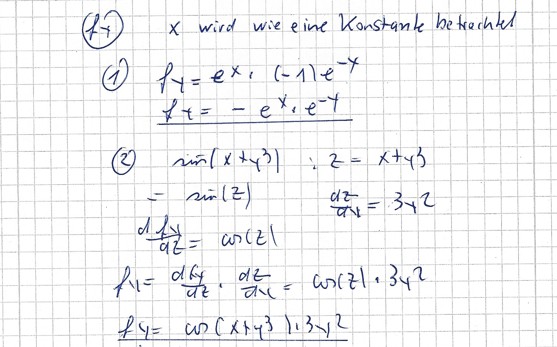 fy x wird wie eine Konstante betrachtet
① fy = eˣ · (-1)e⁻ʸ
fy = - eˣ · e⁻ʸ
② sin(x+y³) : z = x+y³
= sin(z) dz/dy = 3y²
dfy/dz = cos(z)
fy = dfy/dz · dz/dy = cos(z) · 3y²
fy = cos(x+y³) · 3y²